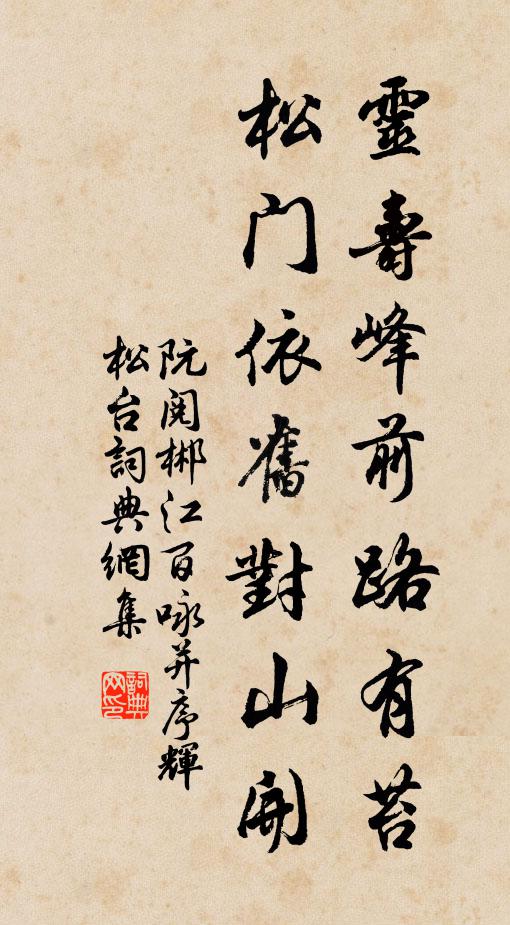 靈壽峰前路有苔
松門依舊對山開
阮閱郴江百咏并序輝
松台詞典網集
詞典网印